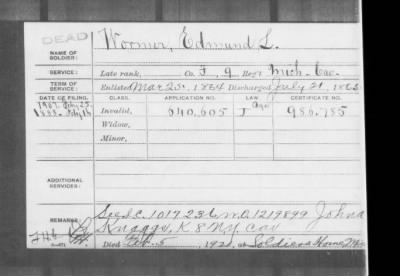 DEAD
NAME OF SOLDIER: Wormer, Edmund L.
SERVICE: Late rank, Co. F, 9 Reg't Mich. Cav.
TERM OF SERVICE: Enlisted Mar 25, 1864 Discharged July 21, 1865
DATE OF FILING. CLASS. APPLICATION NO. LAW. CERTIFICATE NO.
1907 Feby 25 Age
1888 Feby 16 Invalid, 640,605 J 986,785
Widow,
Minor,
ADDITIONAL SERVICES:
REMARKS: See I.C. 1017236 W.O. 1219899 John A
Knaggs, K 8 NY Cav
Died Feb. 5, 192 , at Soldiers Home,